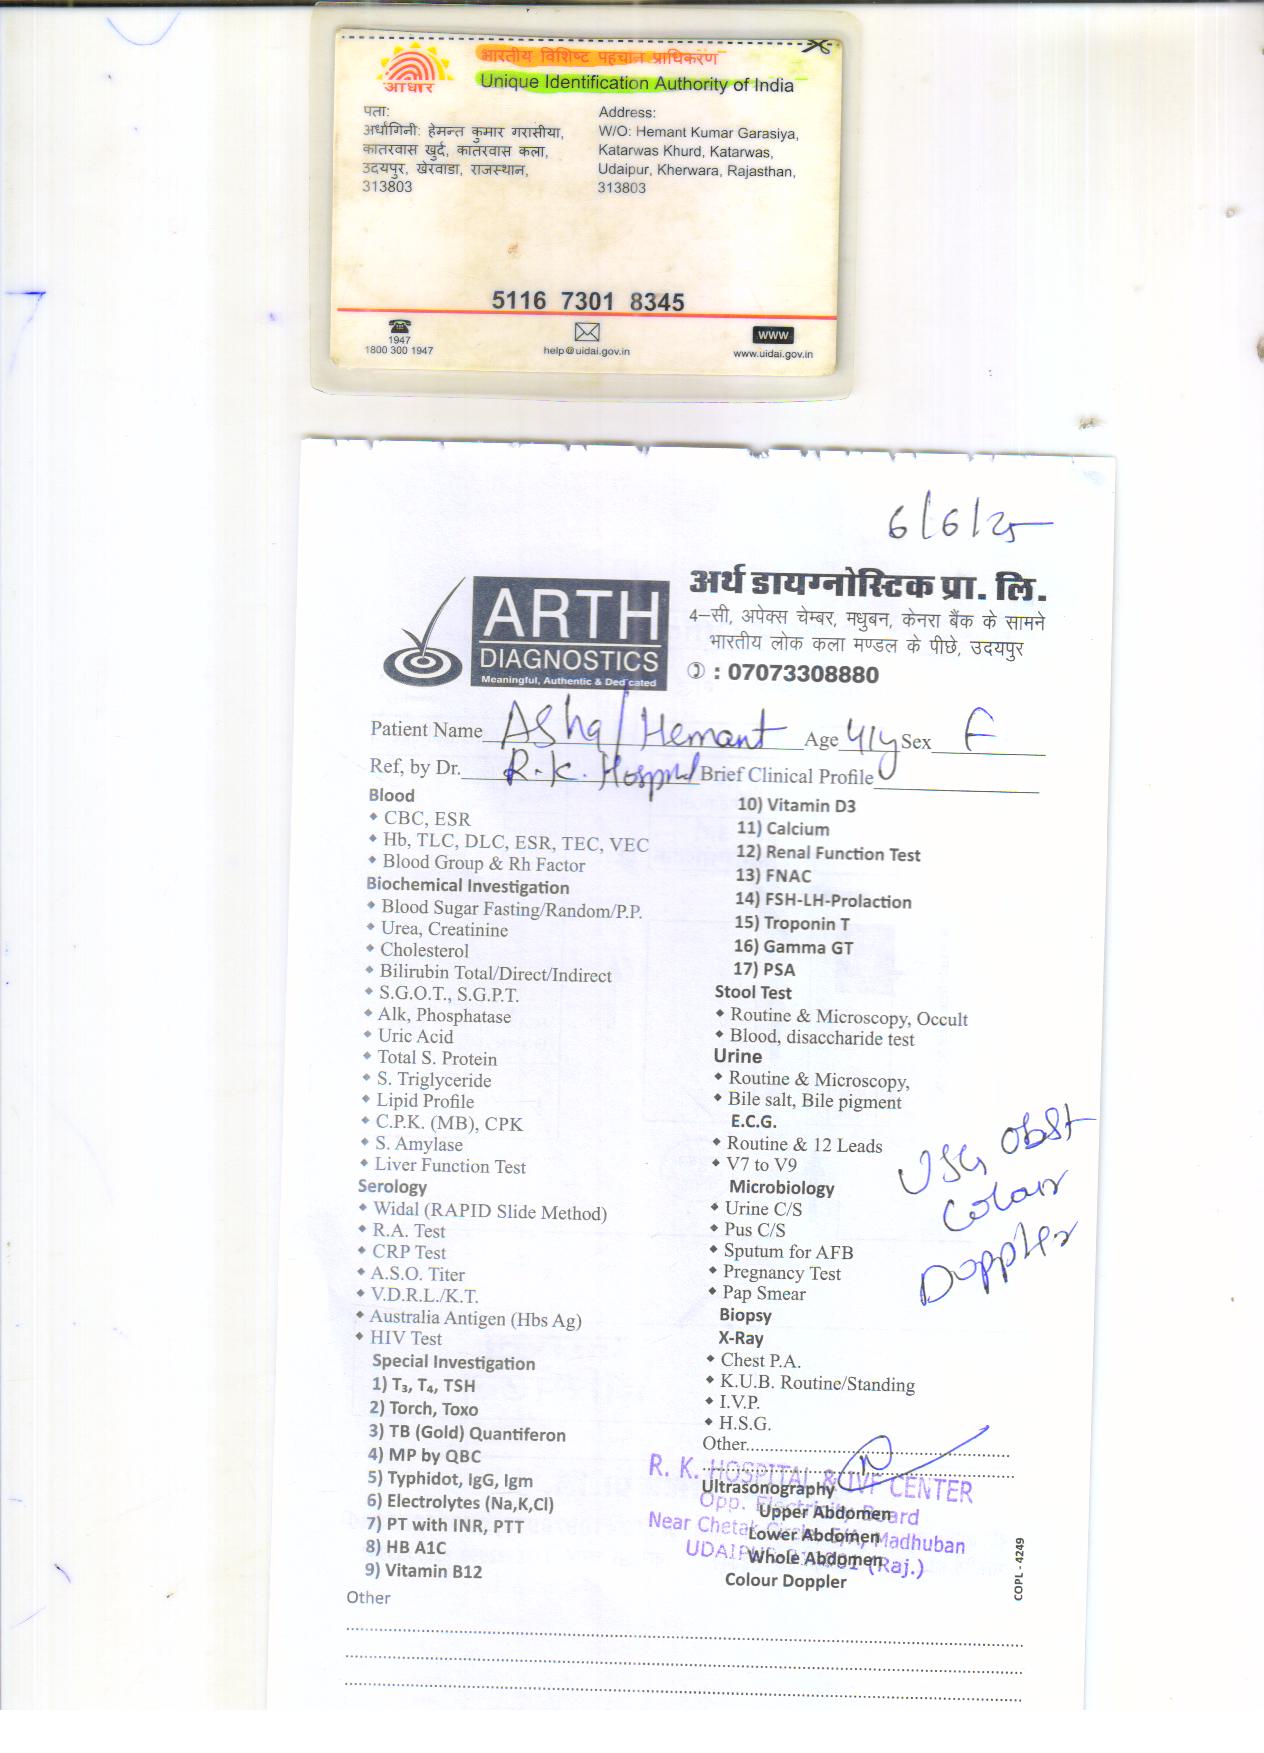 आधार
भारतीय विशिष्ट पहचान प्राधिकरण
Unique Identification Authority of India
पता:
अर्धांगिनी: हेमन्त कुमार गरासीया,
कातरवास खुर्द, कातरवास कला,
उदयपुर, खेरवाडा, राजस्थान,
313803
Address:
W/O: Hemant Kumar Garasiya,
Katarwas Khurd, Katarwas,
Udaipur, Kherwara, Rajasthan,
313803
5116 7301 8345
1947
1800 300 1947
help@uidai.gov.in
www
www.uidai.gov.in
6/6/25
ARTH
DIAGNOSTICS
Meaningful, Authentic & Dedicated
अर्थ डायग्नोस्टिक प्रा. लि.
4–सी, अपेक्स चेम्बर, मधुबन, केनरा बैंक के सामने
भारतीय लोक कला मण्डल के पीछे, उदयपुर
: 07073308880
Patient Name Asha/Hemant Age 41y Sex F
Ref, by Dr. R.K. Hospital Brief Clinical Profile
Blood
CBC, ESR
Hb, TLC, DLC, ESR, TEC, VEC
Blood Group & Rh Factor
Biochemical Investigation
Blood Sugar Fasting/Random/P.P.
Urea, Creatinine
Cholesterol
Bilirubin Total/Direct/Indirect
S.G.O.T., S.G.P.T.
Alk, Phosphatase
Uric Acid
Total S. Protein
S. Triglyceride
Lipid Profile
C.P.K. (MB), CPK
S. Amylase
Liver Function Test
Serology
Widal (RAPID Slide Method)
R.A. Test
CRP Test
A.S.O. Titer
V.D.R.L./K.T.
Australia Antigen (Hbs Ag)
HIV Test
Special Investigation
1) T₃, T₄, TSH
2) Torch, Toxo
3) TB (Gold) Quantiferon
4) MP by QBC
5) Typhidot, IgG, Igm
6) Electrolytes (Na,K,Cl)
7) PT with INR, PTT
8) HB A1C
9) Vitamin B12
Other
10) Vitamin D3
11) Calcium
12) Renal Function Test
13) FNAC
14) FSH-LH-Prolaction
15) Troponin T
16) Gamma GT
17) PSA
Stool Test
Routine & Microscopy, Occult
Blood, disaccharide test
Urine
Routine & Microscopy,
Bile salt, Bile pigment
E.C.G.
Routine & 12 Leads
V7 to V9
Microbiology
Urine C/S
Pus C/S
Sputum for AFB
Pregnancy Test
Pap Smear
Biopsy
X-Ray
Chest P.A.
K.U.B. Routine/Standing
I.V.P.
H.S.G.
Other
Ultrasonography
Upper Abdomen
Lower Abdomen
Whole Abdomen
Colour Doppler
USG Obst
Colour
Doppler
R. K. HOSPITAL & IVF CENTER
Opp. Electricity Board
Near Chetak Circle, Madhuban
UDAIPUR (Raj.)
COPL - 4249